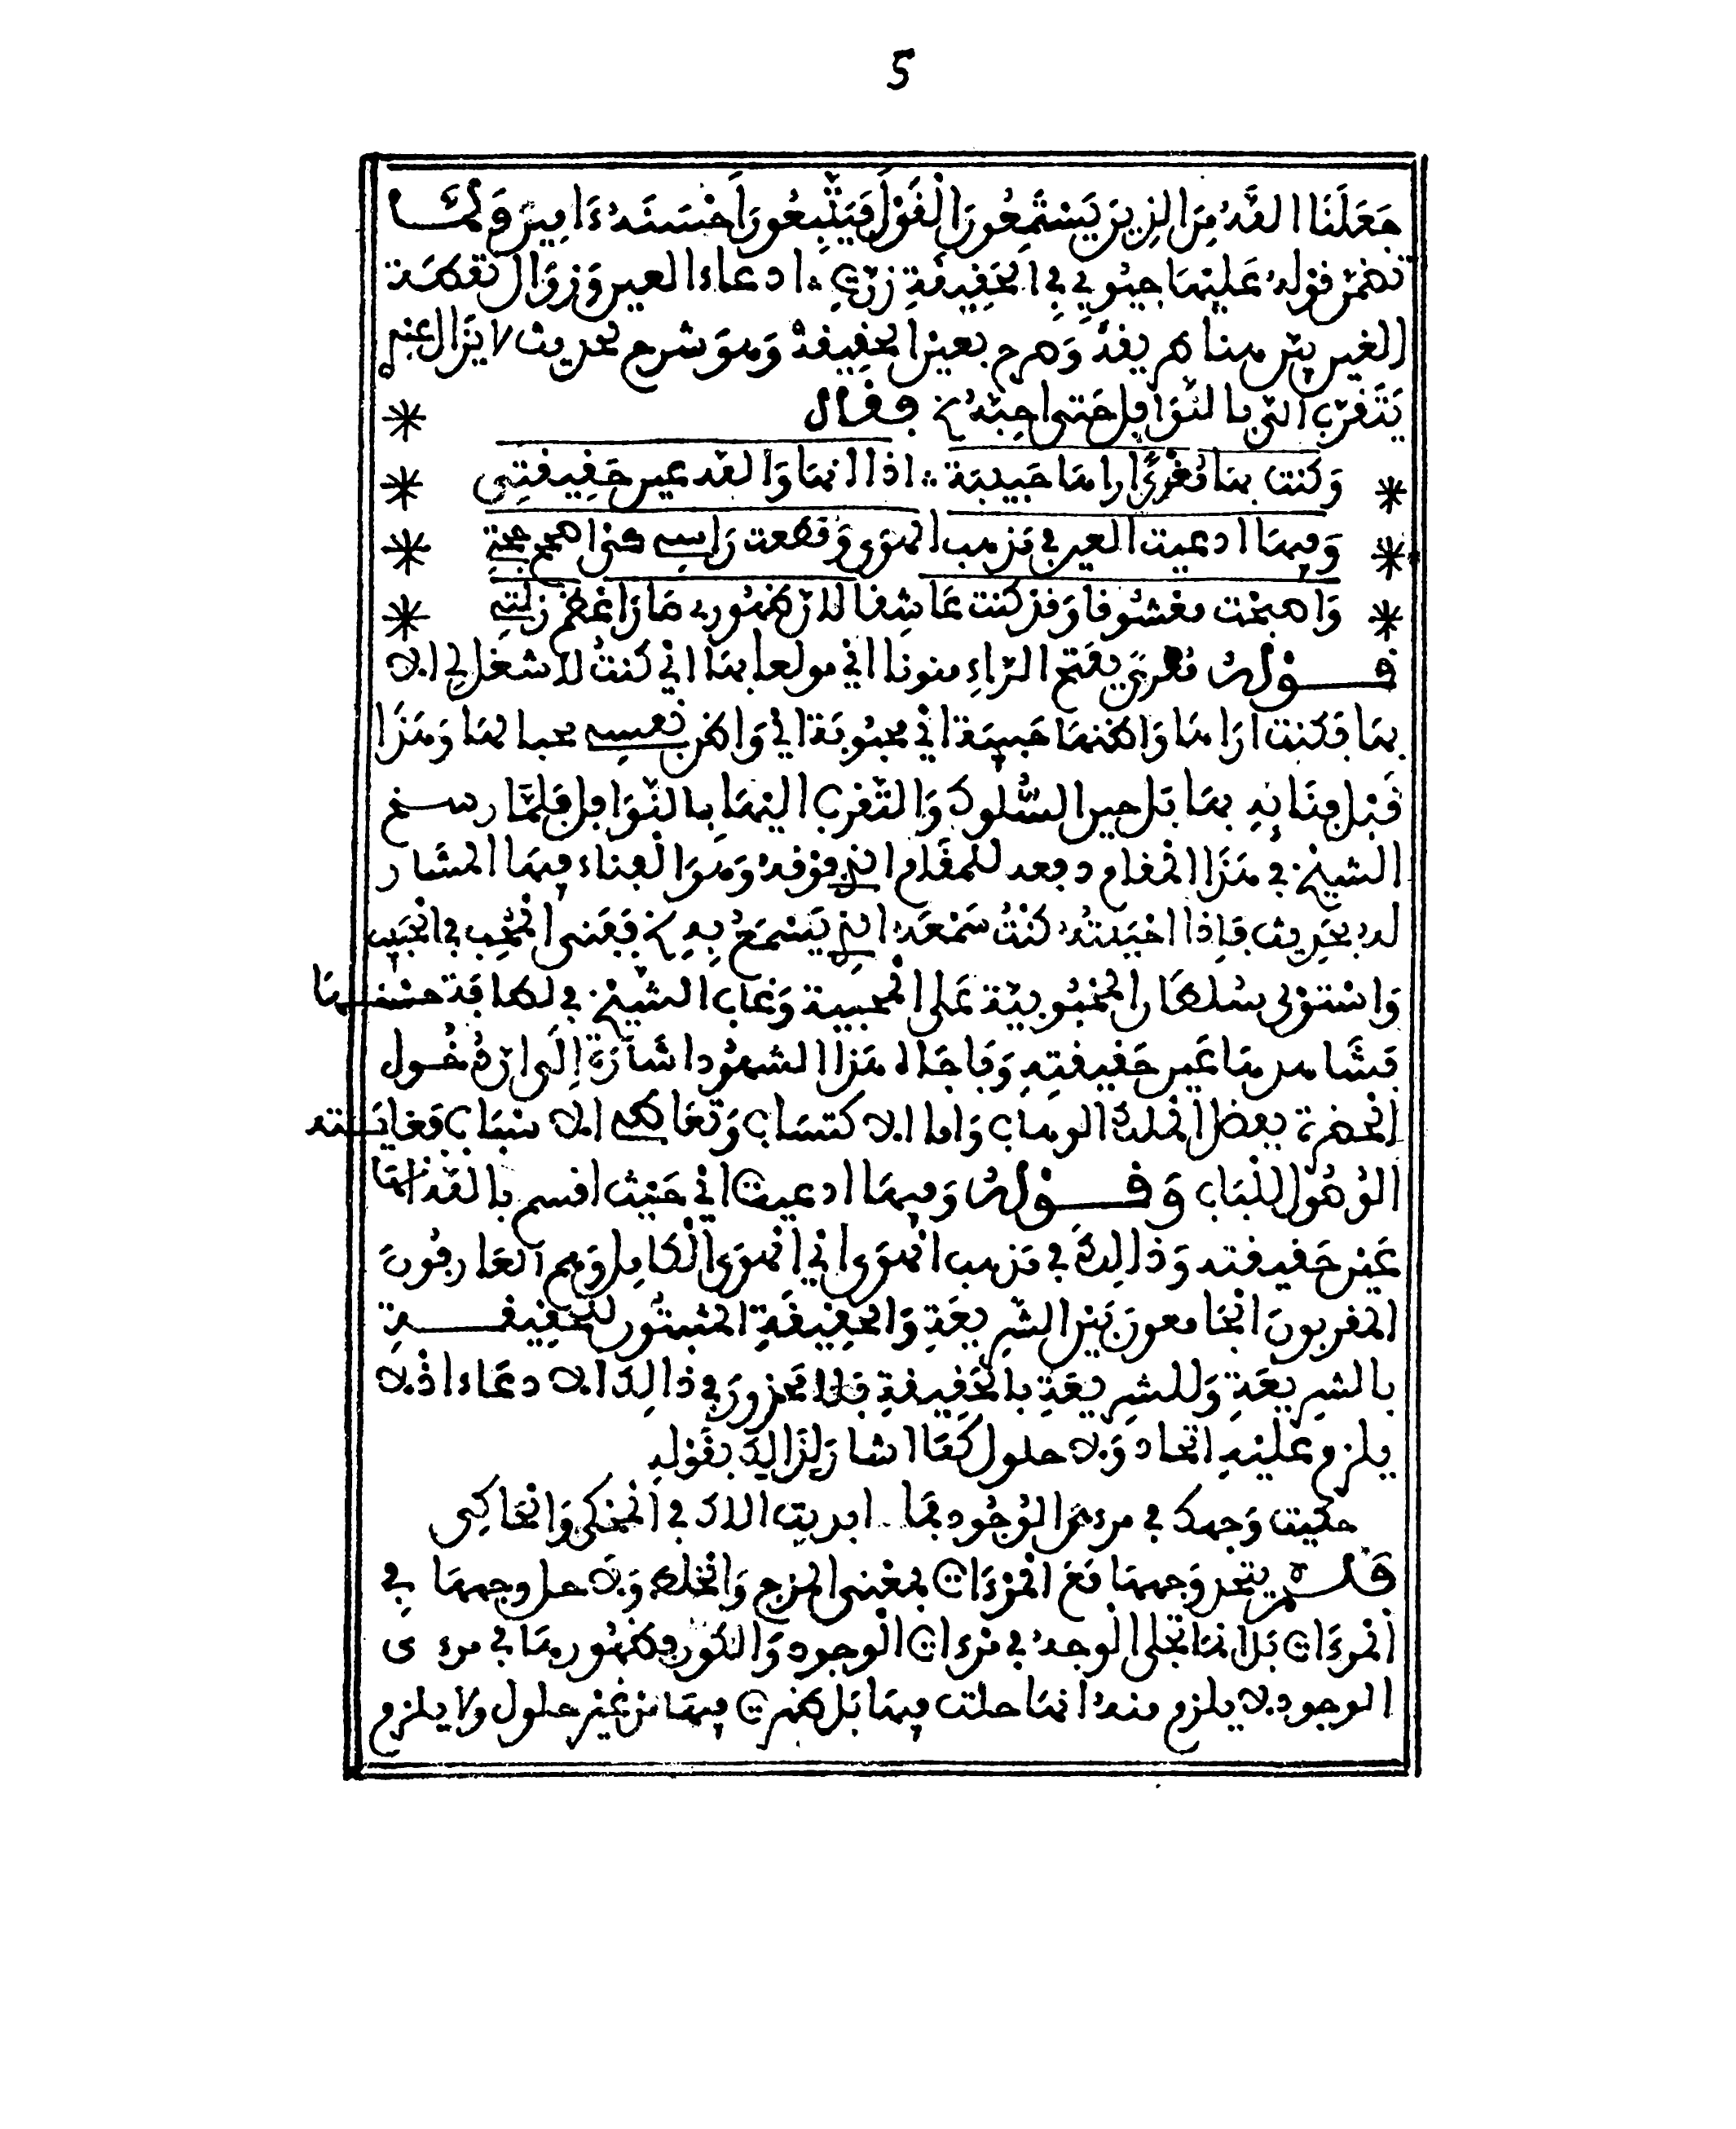 5
جَعَلَنَا اللَّهُ مِنَ الذِينَ يَسْتَمِعُونَ الْقَوْلَ فَيَتَّبِعُونَ أَحْسَنَهُ ءَامِينَ وَلَمَّـا
تضمن قوله عَلَيْهَا جيُوبي فِي الحَقِيقَةِ زرّتِ ادعاء العين وَزوَال نقطة
الغين بيّن هنا طريقه وَصرح بعين الحقيقة وَهوَ شرح لحديث لا يزَال عبدي
يَتَقرّب الي بالنّوَافِل حَتى احِبّهُ الخ فقال
وَكنت بها مُغْرًى اراها حَبيبة اذا انها وَاللّه عين حَقِيقتِى
وَفيها ادعيت العين في مَذهب الهوَى وَقطعت رَاسي كي اصحح محبتي
وَاصبَحْت معشُوقا وَقد كنت عَاشِقا لانّ ظهُوري صَارَ اعْظم زلتي
قَـوْلهُ مُغرًى بِفَتح الرّاءِ منونا اي مولعا بها اي كُنتُ لا شغل لي الا
بهَا فكنت ارَاها وَاظنهَا حَبيبَة اي محبُوبَة الي وَاظن نفسي محبا لهَا وَهَذَا
قَبْل فِنَائِهِ بهَا بَل حين السُّلوك وَالتّقرب اليْهَا بِالنّوَافِل فَلَمَّا رسـخ
الشيخ في هَذَا المقام دفعه للمقَام الذي فوْقه وَهوَ الْفِناء فِيهَا المشَار
لهُ بحَدِيث فَإِذَا احْبَبتُهُ كنْتُ سَمْعَهُ الذي يَسْمَعُ بِهِ الخ فَفَنى المُحِب في الحَبيب
وَاسْتوْلى سُلطَان المحْبُوبيّة عَلى المحبية وَغَاب الشّيخ في لطَافَة حسْنـهَا
فَشَاهدهَا عَين حَقيقتِهِ وَفَاجَاه هَذا الشهُود اشَارَة إلَى انّ دُخُـول
الحضرة بعض الملك الوهاب وَاما الاكتسَاب وَتعَاطي الاسْبَاب فغايَـته
الوُصُول للبَاب وَقَـوْلهُ وَفيهَا ادعيت اي حَيْث اقسم باللّه انهَا
عَيْن حَقيقته وَذالك في مَذهب الهوَى اي الهوَى الْكَامِل وَهم العَارِفُونَ
المقربونَ الجَامعونَ بَيْن الشّرِيعَةِ وَالحَقِيقَةِ المثبتُون للحَقِيقَـةِ
بالشرِيعَةِ وَللشرِيعَةِ بالحَقِيقةِ فلا مَحذورَ في ذالِكَ الادعَاء اذ لا
يلزم عليْهِ اتحاد وَلا حلول كَمَا اشارَ لِذَالِكَ بقَوْلِهِ
حكيت وَجهك في مرءاةِ الوُجُود بمَا ابديت الاك في المحكى وَالحَاكِى
فَلـمْ يتحد وَجههَا مَعَ المرْءَات بمعْنى المزج وَالخلط وَلا حل وجههَا فِي
المرءَات بَل انمَا تجَلى الوجهُ في مرْءات الوجود وَالكون وظهُورهَا في مرءى
الوجود لا يلزم منهُ انها حلت فيهَا بَل ظهرت فيهَا مِن غيْر حلول ولا يلزم